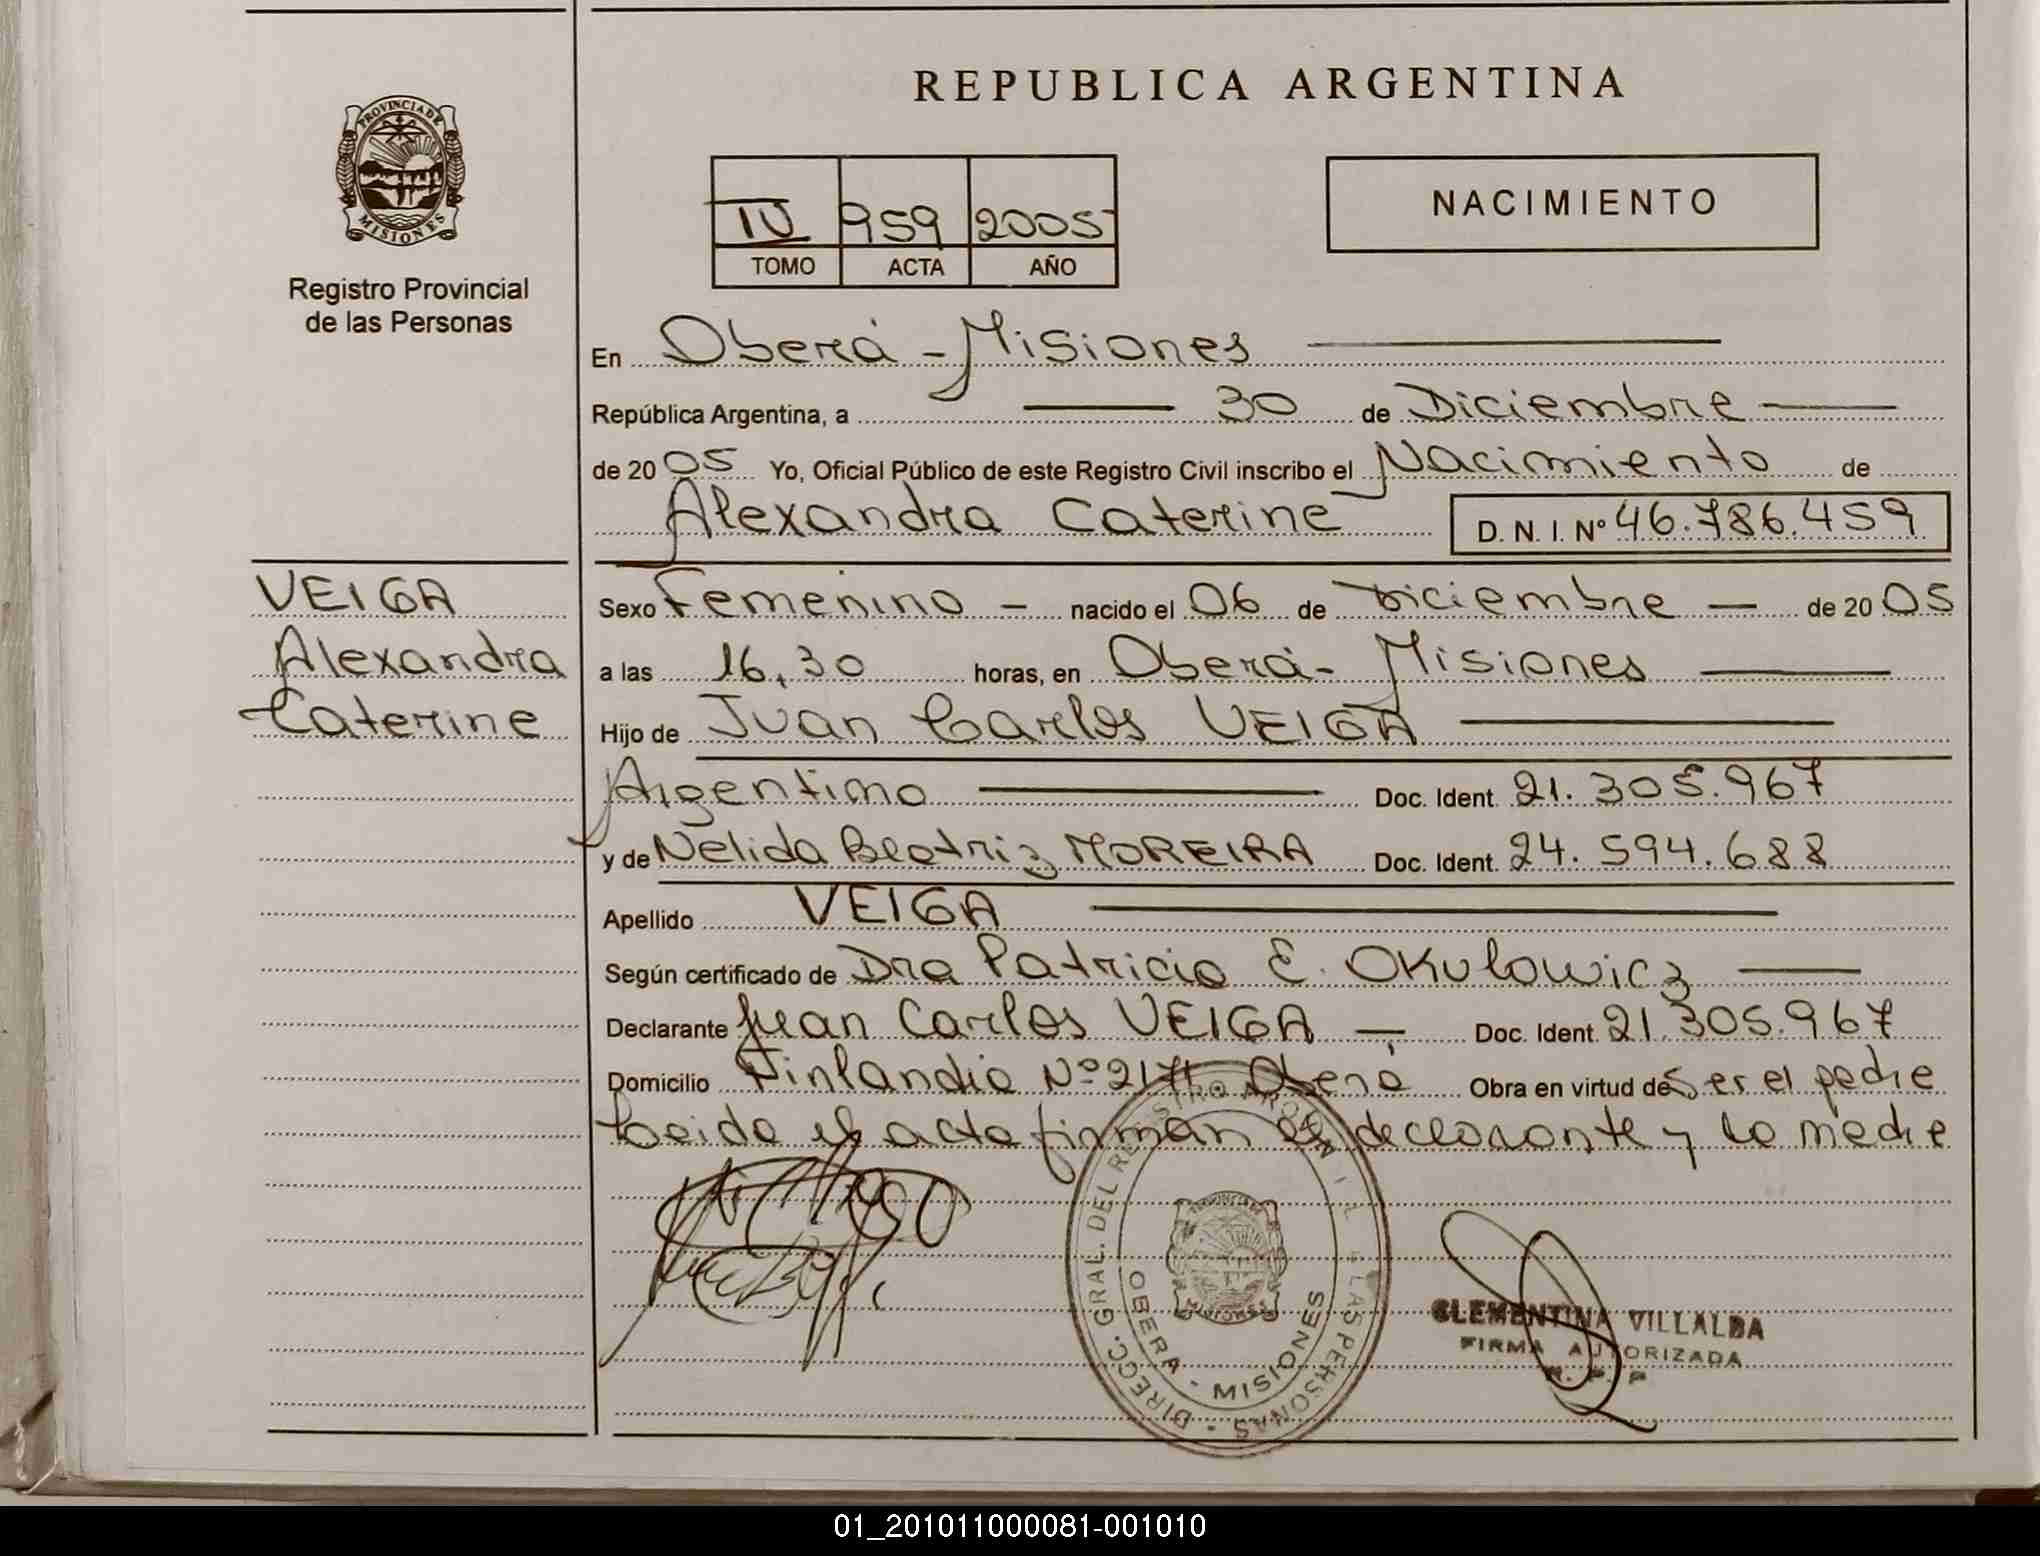 REPUBLICA ARGENTINA
PROVINCIA DE
MISIONES
Registro Provincial
de las Personas
IV 959 2005
TOMO ACTA AÑO
NACIMIENTO
En Oberá - Misiones
República Argentina, a 30 de Diciembre
de 2005 Yo, Oficial Público de este Registro Civil inscribo el Nacimiento de
Alexandra Caterine D. N. I. Nº 46.786.459
VEIGA
Alexandra
Caterine
Sexo Femenino - nacido el 06 de Diciembre - de 2005
a las 16,30 horas, en Oberá - Misiones
Hijo de Juan Carlos VEIGA
Argentino Doc. Ident. 21.305.967
y de Nelida Beatriz MOREIRA Doc. Ident. 24.594.688
Apellido VEIGA
Según certificado de Dra Patricia E. Okulowicz
Declarante Juan Carlos VEIGA - Doc. Ident. 21.305.967
Domicilio Finlandia Nº 2171 Oberá Obra en virtud de Ser el padre
Leida el acta firman el declarante y la madre
DIRECC. GRAL. DEL REGISTRO CIVIL DE LAS PERSONAS
OBERA - MISIONES
CLEMENTINA VILLALBA
FIRMA AUTORIZADA
R. P. P
01_201011000081-001010